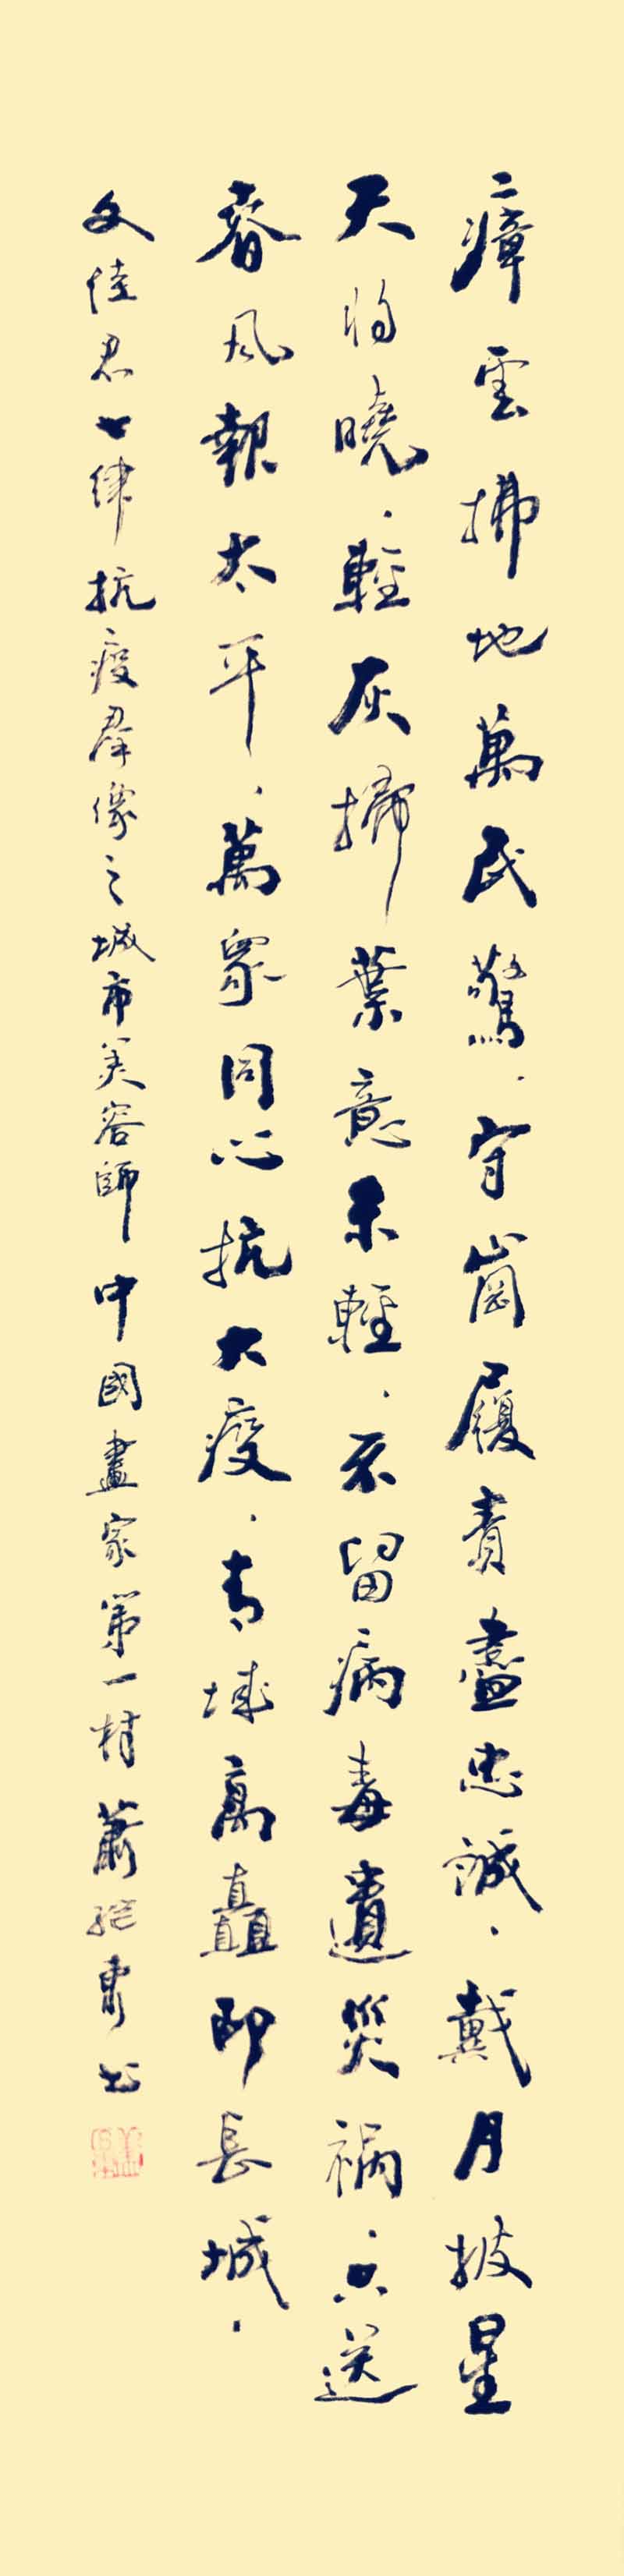 瘴雲拂地萬民驚.守崗履責盡忠誠.戴月披星
天將曉.輕灰掃葉意未輕.不留病毒遺災禍.只送
春風報太平.萬眾同心抗大疫.青城高矗即長城.
文佳君七律抗疫群像之城市美容師中國畫家第一村蕭繼書